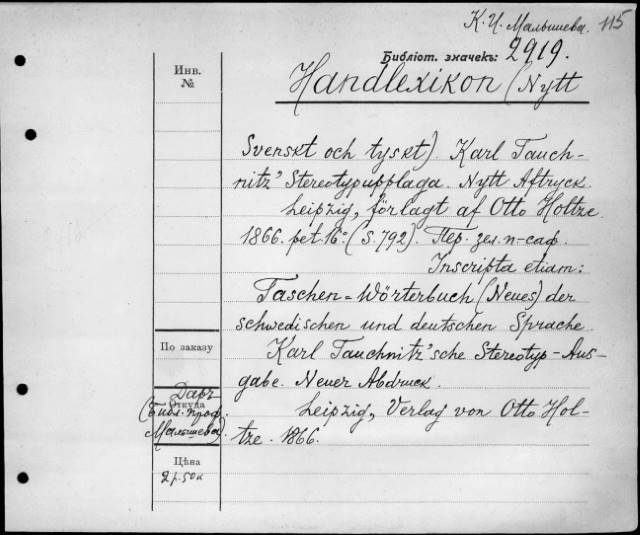 К. И. Малышева. 115
Библіот. значекъ: 2919.
Инв.
№
Handlexikon (Nytt
Svenskt och tyskt). Karl Tauch-
nitz' Stereotypupplaga. Nytt Aftryck.
Leipzig, förlagt af Otto Holtze.
1866. pet. 16º. (S. 792). Пер. зел. п-саф.
Inscripta etiam:
Taschen-Wörterbuch (Neues) der
schwedischen und deutschen Sprache
По заказу
Karl Tauchnitz'sche Stereotyp-Aus-
gabe. Neuer Abdruck.
Даръ
Откуда
(Библ. проф.
Малышева).
Leipzig, Verlag von Otto Hol-
tze. 1866.
Цѣна
2 р. 50 к